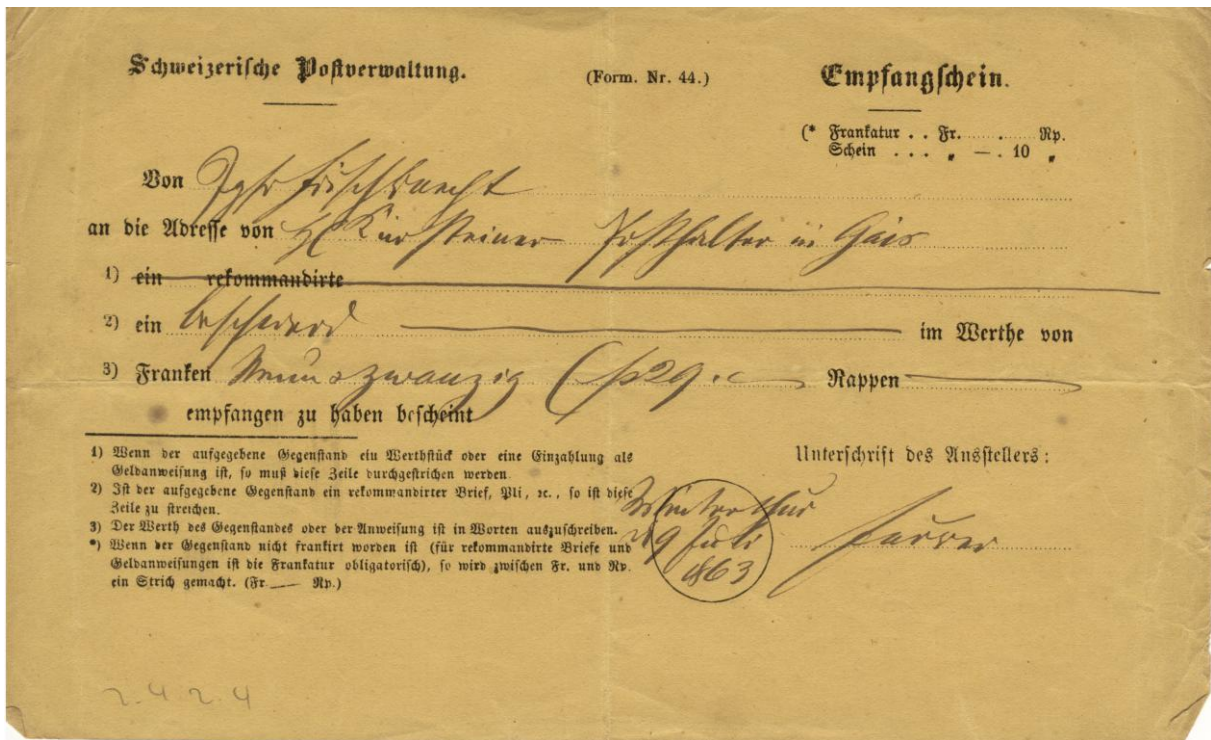 Schweizerische Postverwaltung. (Form. Nr. 44.) Empfangschein.
(* Frankatur . . Fr. . Rp.
Schein . . . „ — . 10 „
Von Frischknecht
an die Adresse von H Kürsteiner Posthalter in Gais
1) ein rekommandirte
2) ein im Werthe von
3) Franken Neunzwanzig 29. Rappen
empfangen zu haben bescheint
1) Wenn der aufgegebene Gegenstand ein Werthstück oder eine Einzahlung als
Geldanweisung ist, so muß diese Zeile durchgestrichen werden.
2) Ist der aufgegebene Gegenstand ein rekommandirter Brief, Pli, ꝛc., so ist diese
Zeile zu streichen.
3) Der Werth des Gegenstandes oder der Anweisung ist in Worten auszuschreiben.
*) Wenn der Gegenstand nicht frankirt worden ist (für rekommandirte Briefe und
Geldanweisungen ist die Frankatur obligatorisch), so wird zwischen Fr. und Rp.
ein Strich gemacht. (Fr — Rp.)
Unterschrift des Ausstellers:
Winterthur
29 Juli Furrer
1863
2.4 2.4